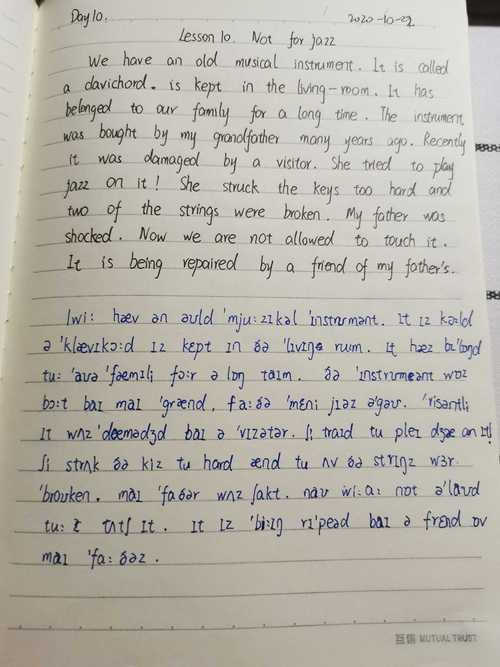 Day 10. 2020-10-22
Lesson 10. Not for jazz
We have an old musical instrument. It is called
a davichord. is kept in the living-room. It has
belonged to our family for a long time. The instrument
was bought by my grandfather many years ago. Recently
it was damaged by a visitor. She tried to play
jazz on it! She struck the keys too hard and
two of the strings were broken. My father was
shocked. Now we are not allowed to touch it.
It is being repaired by a friend of my father's.
/wi: hæv ən əʊld 'mju:zɪkəl 'ɪnstrʊmənt. ɪt ɪz kɔ:ld
ə 'klævɪkɔ:d ɪz kept ɪn ðə 'lɪvɪŋ rum. ɪt hæz bɪ'lɒŋd
tu: 'aʊə 'fæmɪli fɔ:r ə lɒŋ taɪm. ðə 'ɪnstrʊmeənt wɒz
bɔ:t baɪ maɪ 'grænd, fa:ðə 'mɛni jɪəz ə'gəʊ. 'risəntli
ɪt wʌz 'dæmədʒd baɪ ə 'vɪzətər. ʃi traɪd tu pleɪ dʒæ an ɪt/
ʃi strʌk ðə kiz tu hard ænd tu ʌv ðə strɪŋz wɜr
'broʊken. maɪ 'faðər wʌz ʃakt. naʊ wi: a: not ə'laʊd
tu: tʌtʃ ɪt. ɪt ɪz 'bi:ɪŋ rɪ'peəd baɪ ə frɛnd ɒv
maɪ 'fa:ðəz.
互信 MUTUAL TRUST